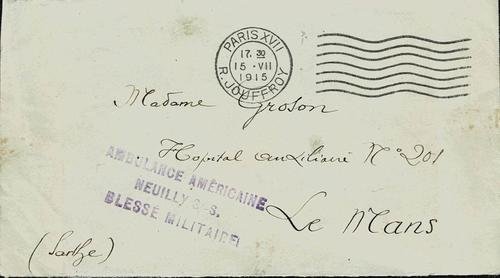 PARIS XVII
17 30
15 · VII
1915
R. JOUFFROY
Madame Groson
Hopital auxiliaire N° 201
AMBULANCE AMÉRICAINE
NEUILLY S-S.
BLESSÉ MILITAIRE
Le Mans
(Sarthe)